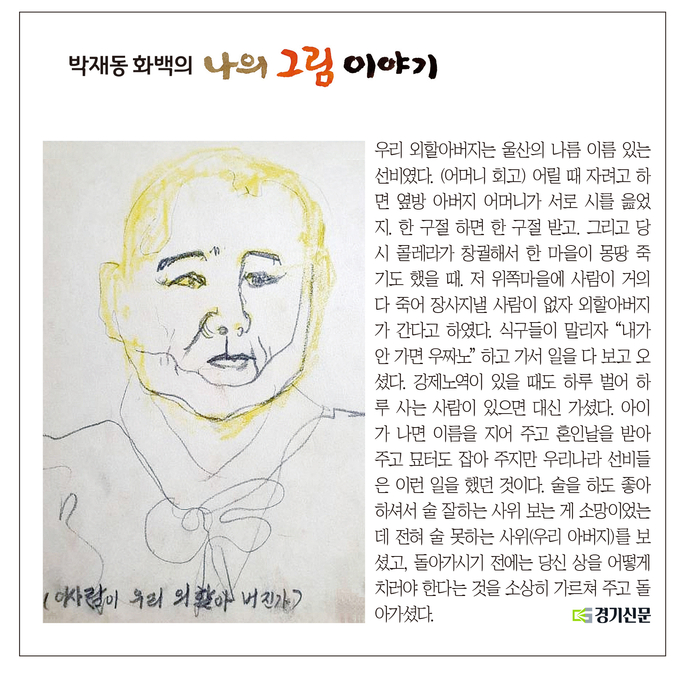 박재동 화백의 나의 그림 이야기
우리 외할아버지는 울산의 나름 이름 있는
선비였다. (어머니 회고) 어릴 때 자려고 하
면 옆방 아버지 어머니가 서로 시를 읊었
지. 한 구절 하면 한 구절 받고. 그리고 당
시 콜레라가 창궐해서 한 마을이 몽땅 죽
기도 했을 때. 저 위쪽마을에 사람이 거의
다 죽어 장사지낼 사람이 없자 외할아버지
가 간다고 하였다. 식구들이 말리자 “내가
안 가면 우짜노” 하고 가서 일을 다 보고 오
셨다. 강제노역이 있을 때도 하루 벌어 하
루 사는 사람이 있으면 대신 가셨다. 아이
가 나면 이름을 지어 주고 혼인날을 받아
주고 묘터도 잡아 주지만 우리나라 선비들
은 이런 일을 했던 것이다. 술을 하도 좋아
하셔서 술 잘하는 사위 보는 게 소망이었는
데 전혀 술 못하는 사위(우리 아버지)를 보
셨고, 돌아가시기 전에는 당신 상을 어떻게
치러야 한다는 것을 소상히 가르쳐 주고 돌
아가셨다.
경기신문
(이사람이 우리 외할아 버진가)